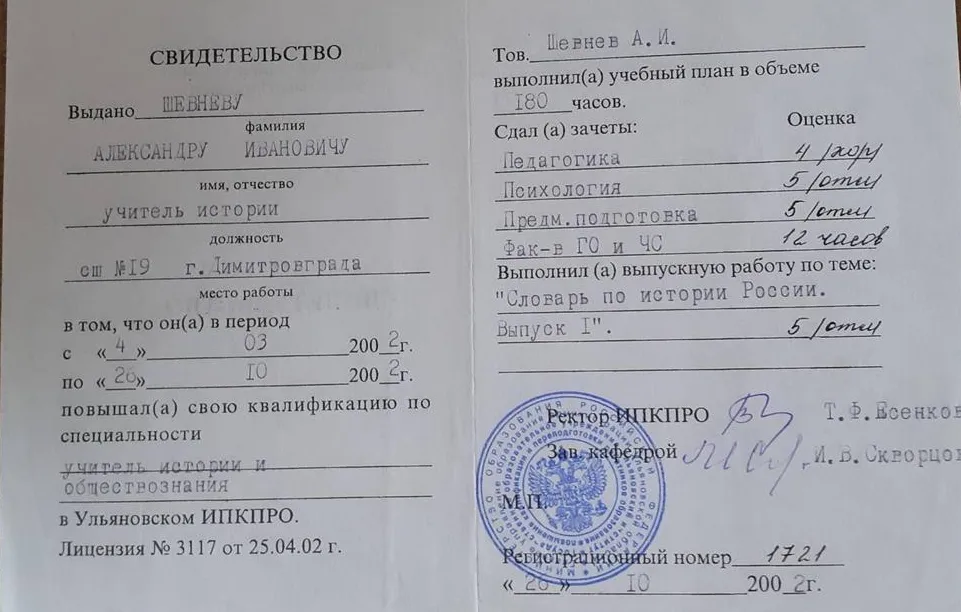 СВИДЕТЕЛЬСТВО
Выдано ШЕВНЕВУ
фамилия
АЛЕКСАНДРУ ИВАНОВИЧУ
имя, отчество
учитель истории
должность
сш №19 г. Димитровграда
место работы
в том, что он(а) в период
с «4» 03 2002г.
по «26» 10 2002г.
повышал(а) свою квалификацию по
специальности
учитель истории и
обществознания
в Ульяновском ИПКПРО.
Лицензия № 3117 от 25.04.02 г.
Тов. Шевнев А.И.
выполнил(а) учебный план в объеме
180 часов.
Сдал (а) зачеты: Оценка
Педагогика 4 /хор/
Психология 5 /отл/
Предм.подготовка 5 /отл/
Фак-в ГО и ЧС 12 часов
Выполнил (а) выпускную работу по теме:
"Словарь по истории России.
Выпуск I". 5 /отл/
Ректор ИПКПРО Т.Ф.Есенков
Зав. кафедрой И.В.Скворцо
М.П.
Регистрационный номер 1721
«26» 10 2002г.